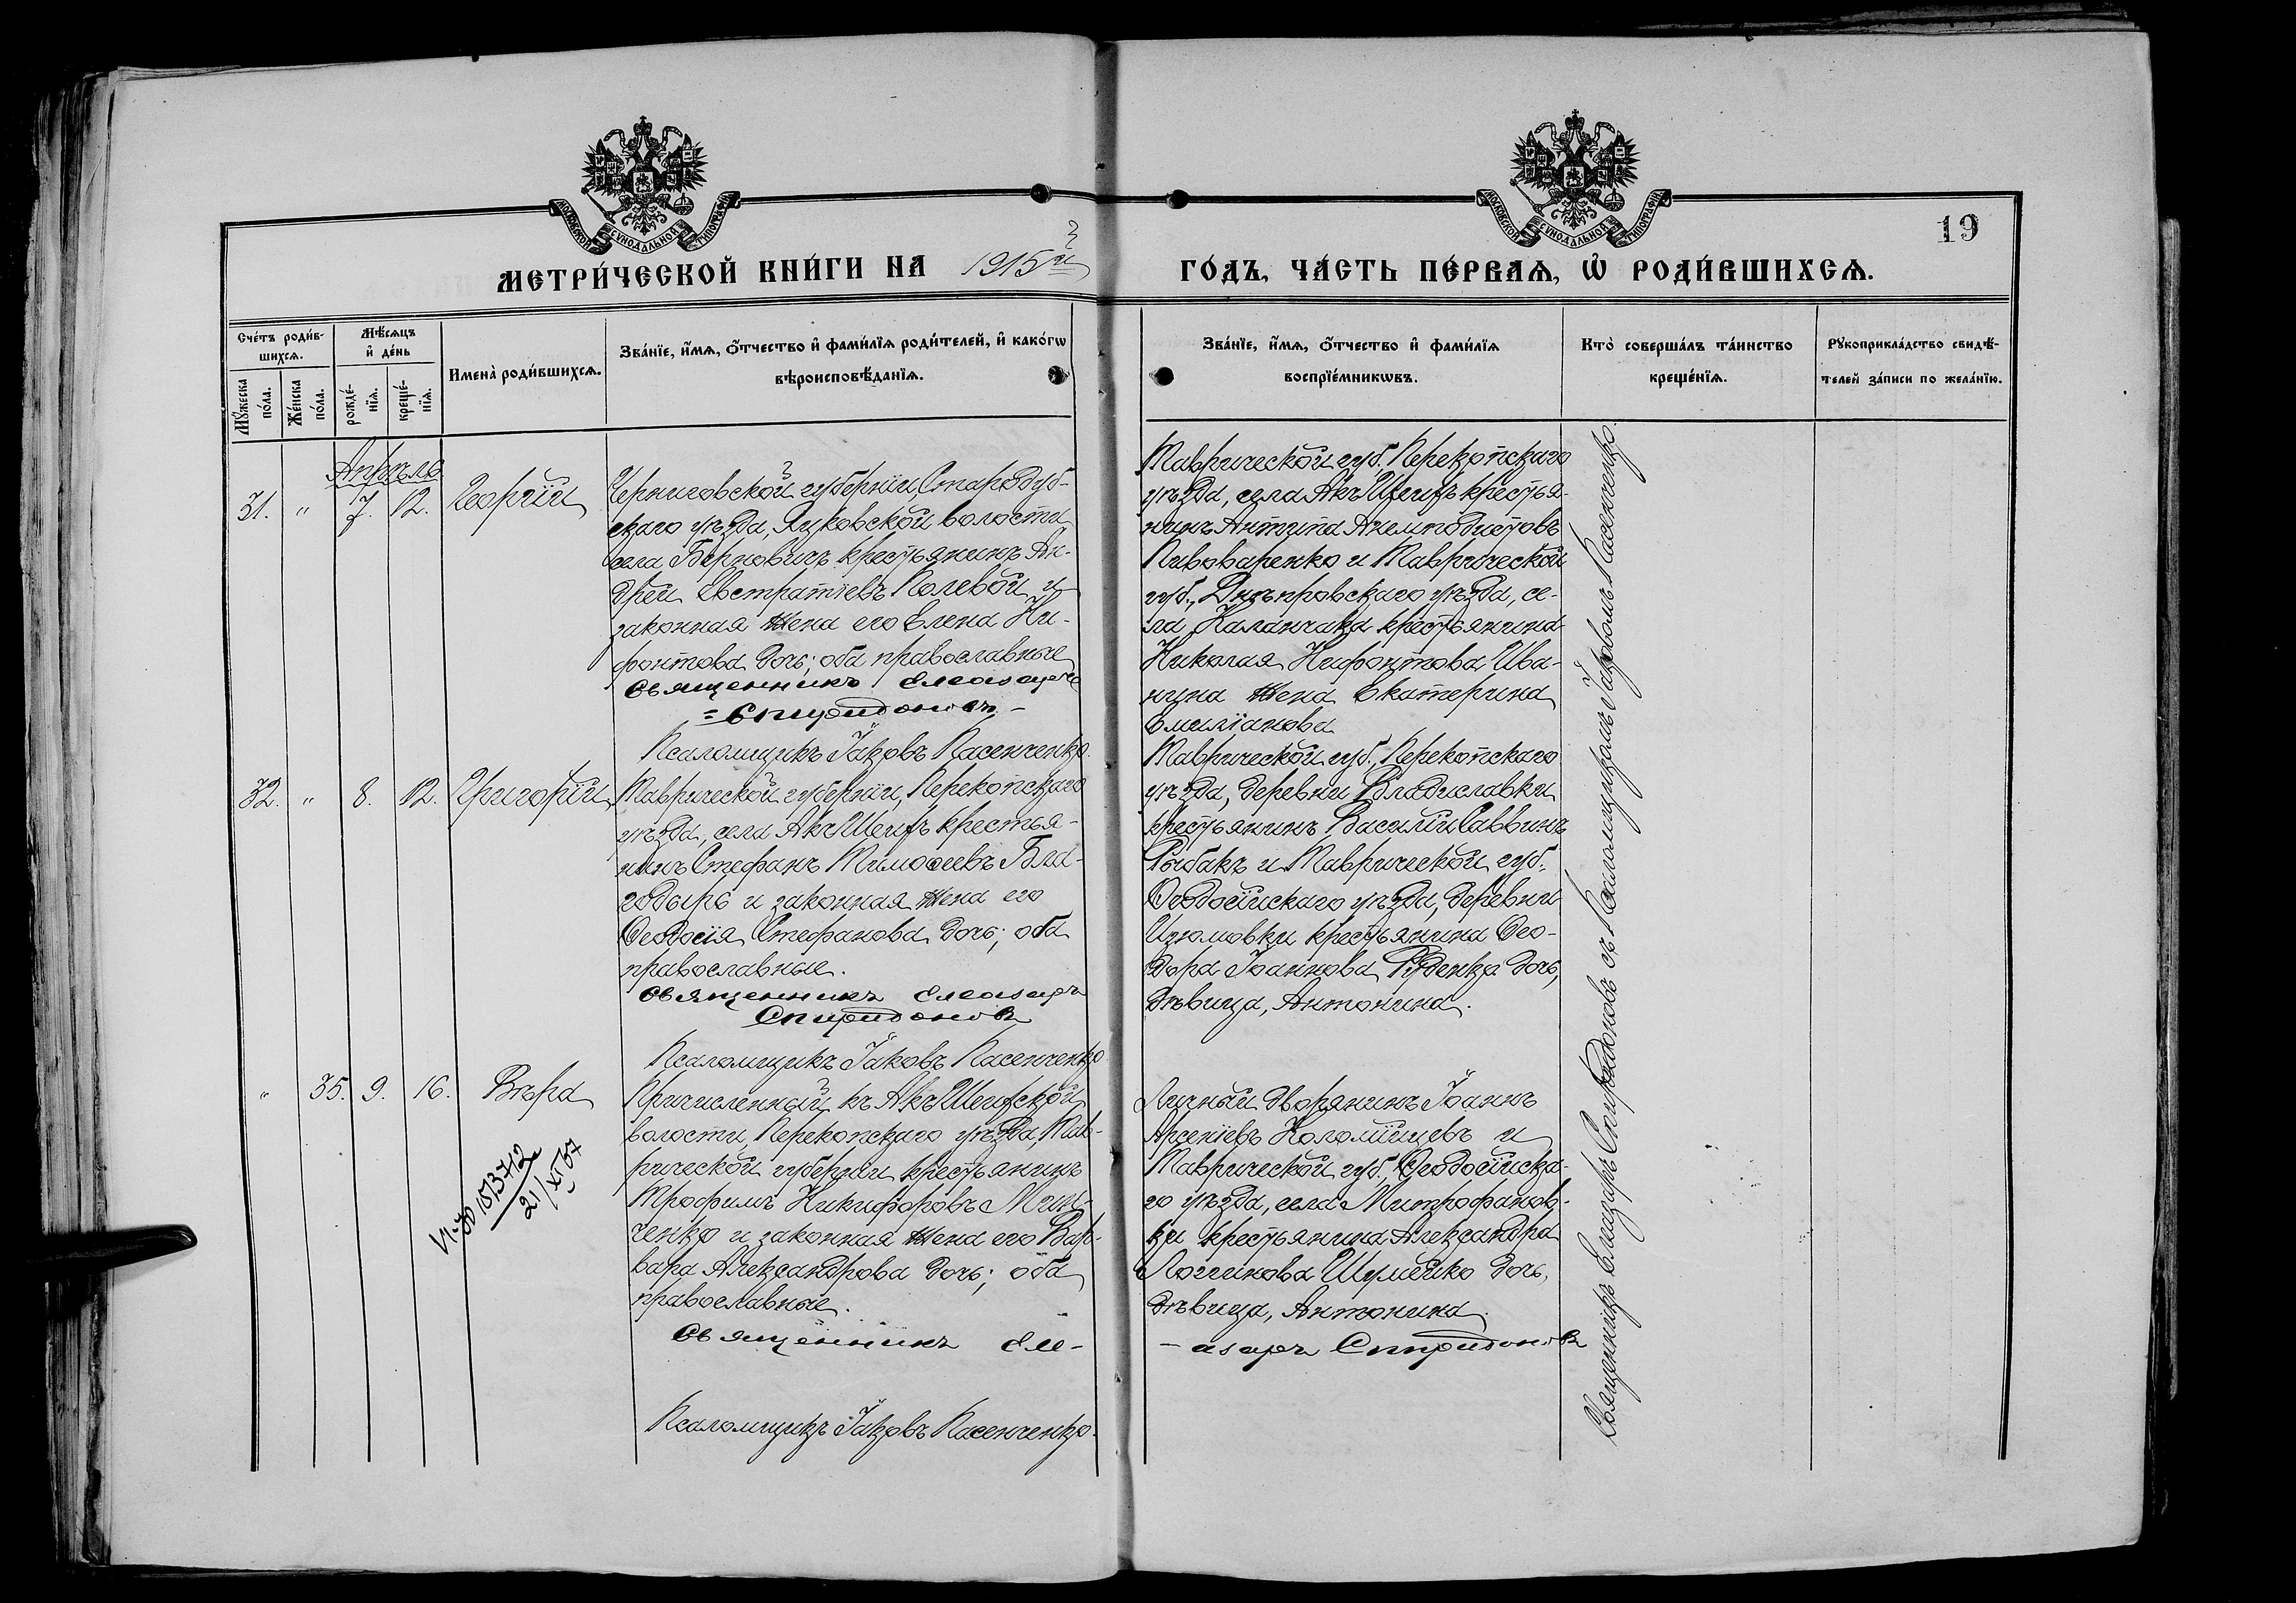 МОСКОВСКОЙ СѴНОДАЛЬНОЙ ТИПОГРАФІИ
МОСКОВСКОЙ СѴНОДАЛЬНОЙ ТИПОГРАФІИ
19
МЕТРИ́ЧЕСКОЙ КНИ́ГИ НА 1915й ГО́ДЪ, ЧА́СТЬ ПЕ́РВАѦ, Ѡ҆ РОДИ́ВШИХСѦ.
Сче́тъ роди́в-
шихсѧ.
Мꙋ́жеска
по́ла.
Же́нска
по́ла.
Мѣ́сѧцъ
и҆ де́нь
рожде́-
нїѧ.
креще́-
нїѧ.
Имена̀ роди́вшихсѧ.
Зва́нїе, и҆́мѧ, ѻ҆́тчество и҆ фами́лїѧ роди́телей, и҆ како́гѡ
вѣроисповѣ́данїѧ.
Зва́нїе, и҆́мѧ, ѻ҆́тчество и҆ фами́лїѧ
воспрїе́мникѡвъ.
Кто̀ соверша́лъ та́инство
креще́нїѧ.
Рꙋкоприкла́дство свидѣ́-
телей за́писи по жела́нїю.
Апрѣль
31. " 7. 12. Георгій
Черниговской губерніи, Стародуб-
скаго уѣзда, Яцковской волости
села Берновичъ крестьянинъ Ан-
дрей Евстратіевъ Полевой и
законная жена его Елена Ни-
фонтова дочь; оба православные
Священникъ Елеазаръ
= Спиридоновъ -
Псаломщикъ Іаковъ Пасенченко.
Таврической губ., Перекопскаго
уѣзда, села Акъ Шеихъ крестья-
нинъ Антипа Анемподистовъ
Пивоваренко и Таврической
губ., Днѣпровскаго уѣзда, се-
ла Каланчака крестьянина
Николая Нифонтова Ива-
нина жена Екатерина
Емиліанова
32. " 8. 12. Григорій
Таврической губерніи, Перекопскаго
уѣзда, села Акъ Шеихъ крестья-
нинъ Стефанъ Тимоѳеевъ Бла-
годырь и законная жена его
Ѳеодосія Стефанова дочь; оба
православные.
Священникъ Елеазаръ
Спиридоновъ
Псаломщикъ Іаковъ Пасенченко
Таврической губ., Перекопскаго
уѣзда, деревни Владиславки
крестьянинъ Василій Саввинъ
Рыбакъ и Таврической губ.
Ѳеодосійскаго уѣзда, деревни
Изюмовки крестьянина Ѳео-
дора Іоаннова Руденка дочь,
дѣвица, Антонина.
" 35. 9. 16. Вѣра
Причисленный къ Акъ Шеихской
волости, Перекопскаго уѣзда, Тав-
рической губерніи крестьянинъ
Трофимъ Никифоровъ Мин-
ченко и законная жена его Вар-
вара Александрова дочь; оба
православные.
Священникъ Еле-
Псаломщикъ Іаковъ Пасенченко.
Личный дворянинъ Іоаннъ
Арсеніевъ Коломійцевъ и
Таврической губ., Ѳеодосійска-
го уѣзда, села Митрофанов-
ки крестьянина Александра
Логгинова Шумейко дочь,
дѣвица, Антонина.
- азаръ Спиридоновъ
1513712
21/XI 67
Священникъ Елеазаръ Спиридоновъ съ Псаломщикомъ Іаковомъ Пасенченко.